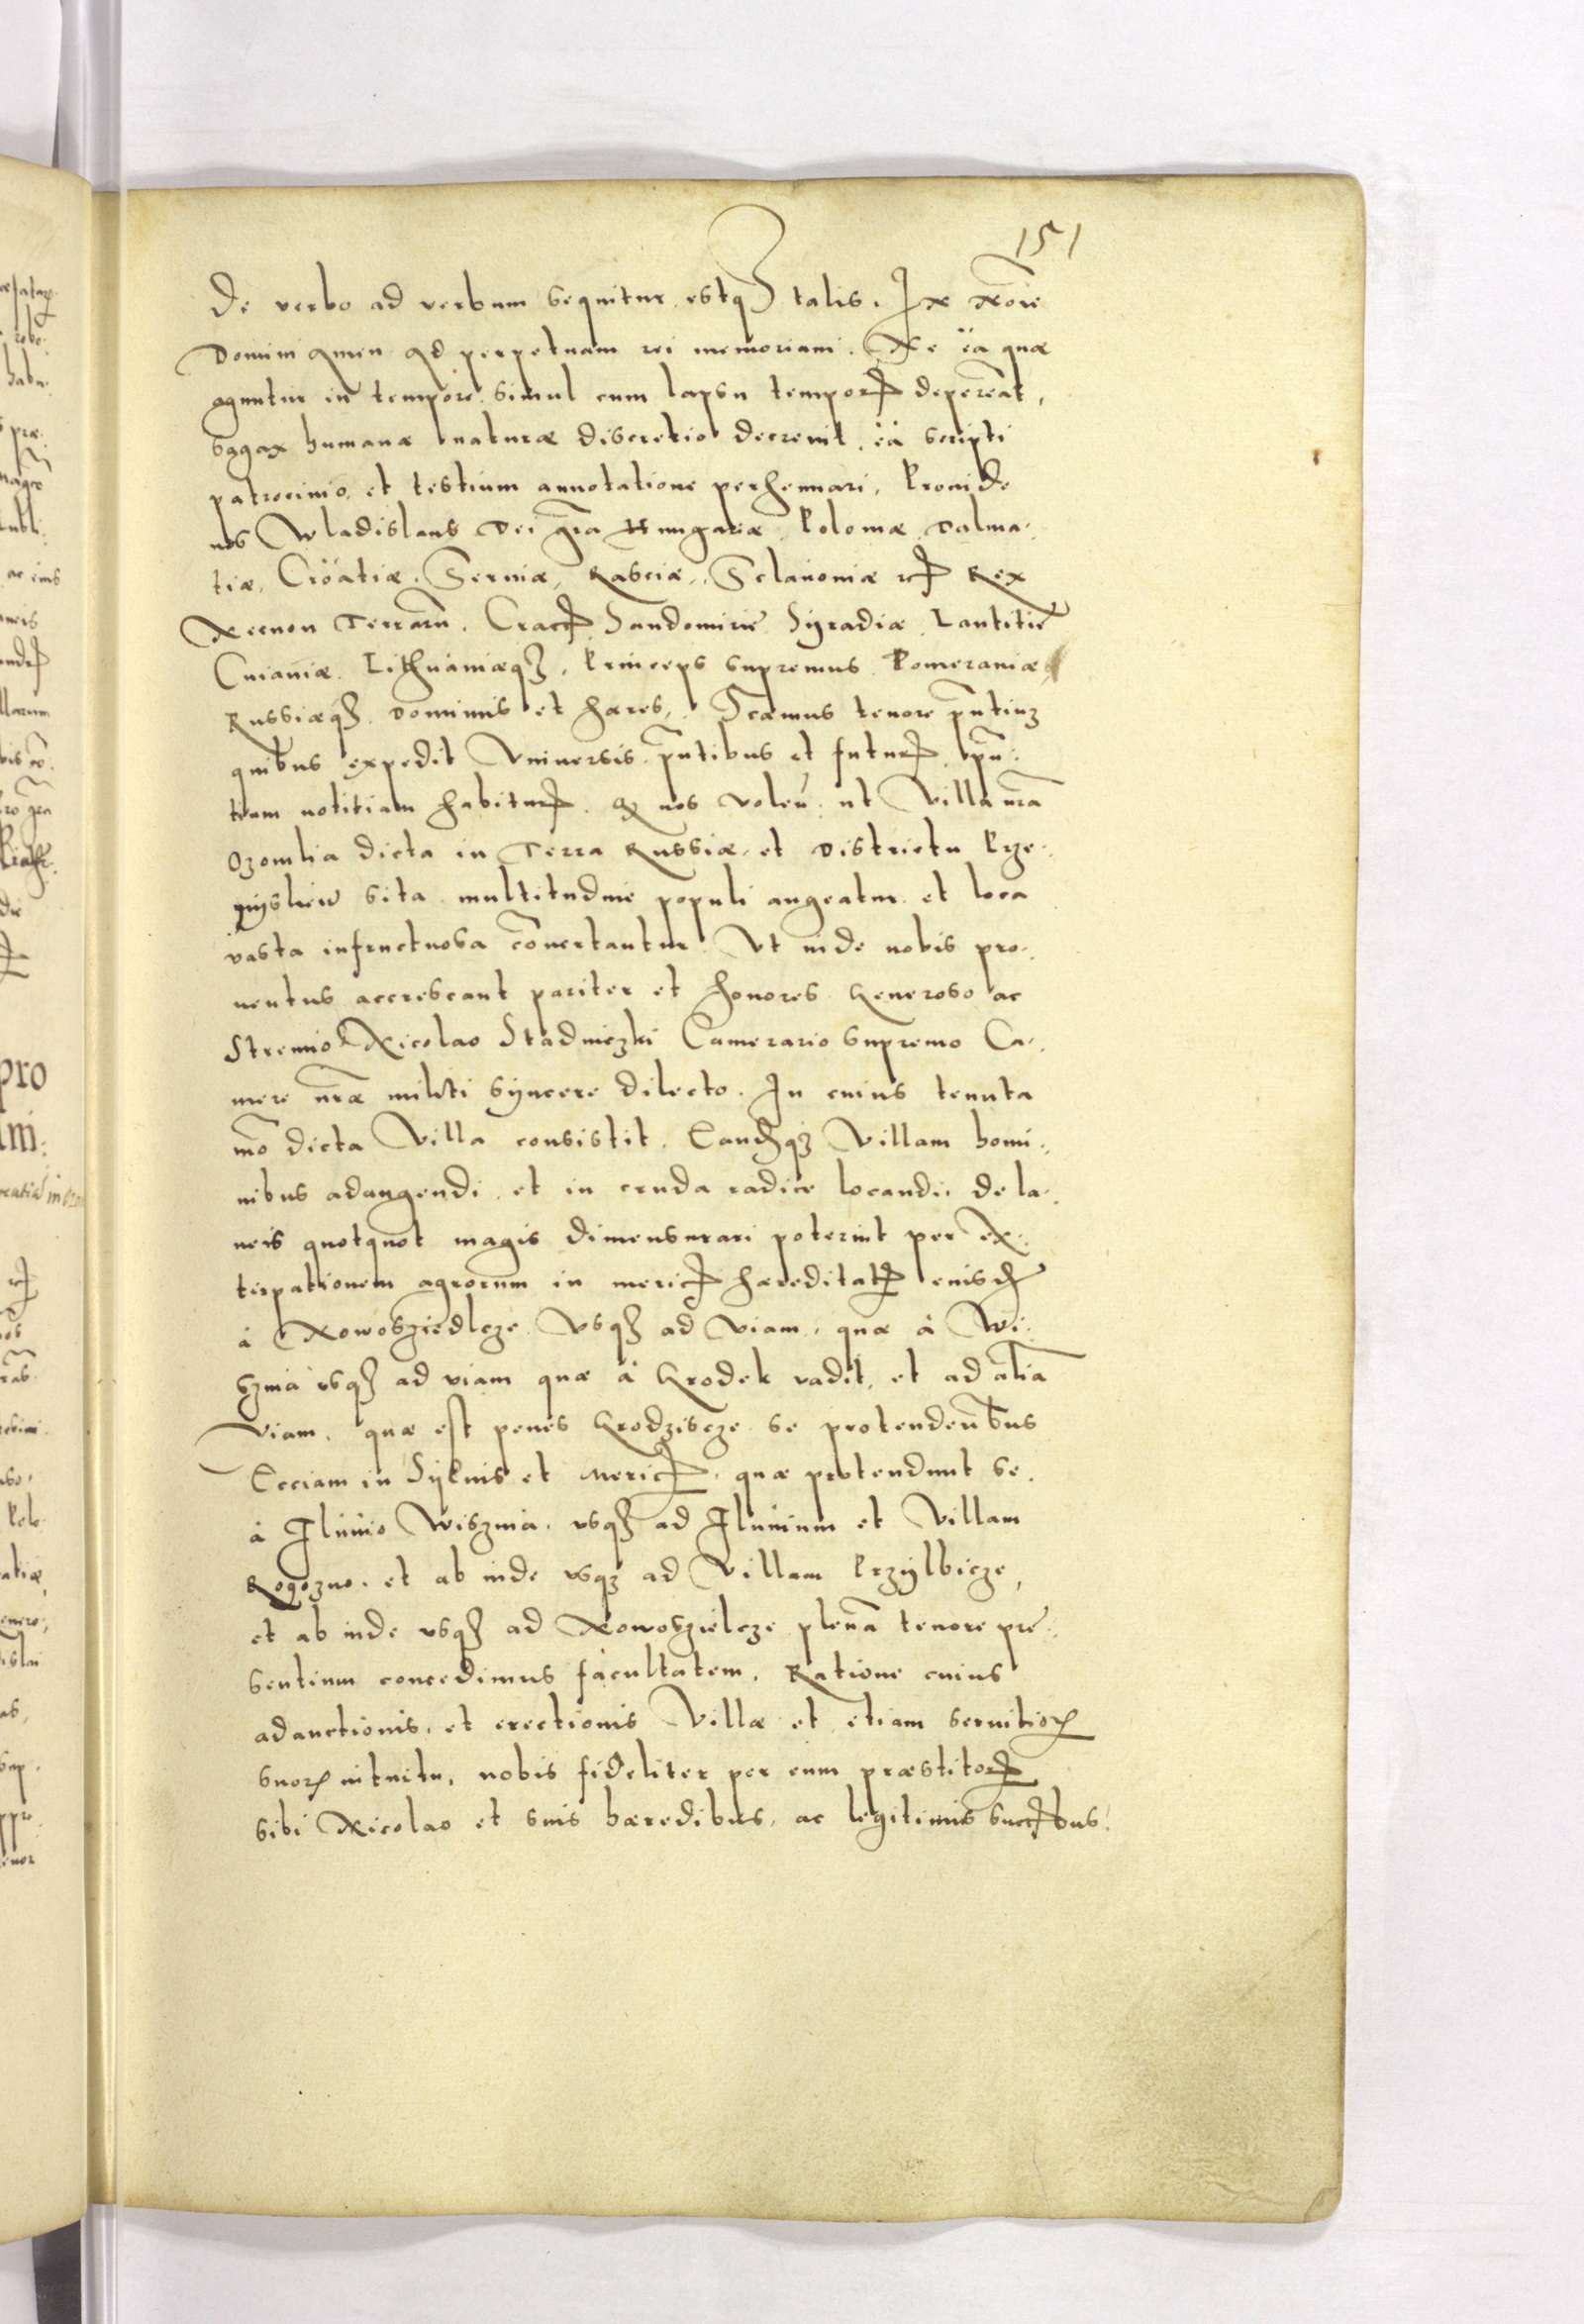 151
De verbo ad verbum sequitur estq3 talis. In Nōie
Domini Amen Ad perpetuam rei memoriam. Ne ea quæ
aguntur in tempore simul cum lapsu tempor̄ depereāt,
sagax humanæ naturæ discretio decrevit, ea scripti
patrocinio et testium annotatione perhennari, Proinde
nos Wladislaus Dei gr̄a Hungariæ Poloniæ Dalma-
tiæ, Croatiæ, Serviæ, Rasciæ, Sclavoniæ etc Rex
Necnon Terrarū. Crac̄ Sandomirie Syradiæ Lantitie
Cuiaviæ Lithuaniæq3, Princeps supremus Pomeraniæ
Russiæq3 Dominus et hæres, Scimus tenore pn̄tiuz
quibus expedit Universis pn̄tibus et futur̄
notitiam habitur̄. Q nos volen̄ ut Villa nr̄a
Ozomlia dicta in Terra Russiæ et Districtu Prze-
mysliens sita multitudine populi augeatur et loca
vasta infructuosa cōvertantur Ut inde nobis pro-
ventus accrescant pariter et honores Generoso ac
Strenuo Nicolao Stadniczki Camerario supremo Ca-
mere nr̄æ militi syncere dilecto. In cuius tenuta
mō dicta Villa consistit. Eandq3 Villam homi-
nibus adaugendi et in cruda radice locandi de la-
neis quotquot magis dimensurari poterint per ex-
tirpationem agrorum in meric̄ hæreditat̄ eiusd
à Nowosziedlcze usq3 ad viam, quæ à Wi-
sznia usq3 ad viam quæ à Grodek vadit, et ad aliā
viam, quæ est penes Grodziscze se protendentibus
Ecciam in Sylvis et meric̄, quæ protendunt se
à fluvio Wisznia, usq3 ad fluvium et Villam
Rogozno. et ab inde usq3 ad Villam Przylbicze,
et ab inde usq3 ad Nowoszielcze plenā tenore pre-
sentium concedimus facultatem, Ratione cuius
adauctionis, et erectionis Villæ et etiam servitior̄
suor̄ intuitu, nobis fideliter per eum præstitor̄
sibi Nicolao et suis hæredibus, ac legitimis succ̄bus